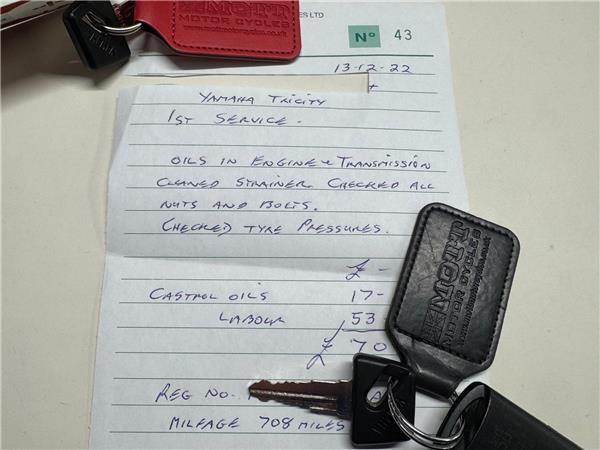 MOTT
MOTOR CYCLES
LTD
Nº 43
13-12-22
YAMAHA TRICITY
1ST SERVICE.
OILS IN ENGINE & TRANSMISSION
CLEANED STRAINER. CHECKED ALL
NUTS AND BOLTS.
CHECKED TYRE PRESSURES.
£ -
CASTROL OILS 17-
LABOUR 53
£ 70
REG NO.
MILEAGE 708 MILES
MOTT
MOTOR CYCLES